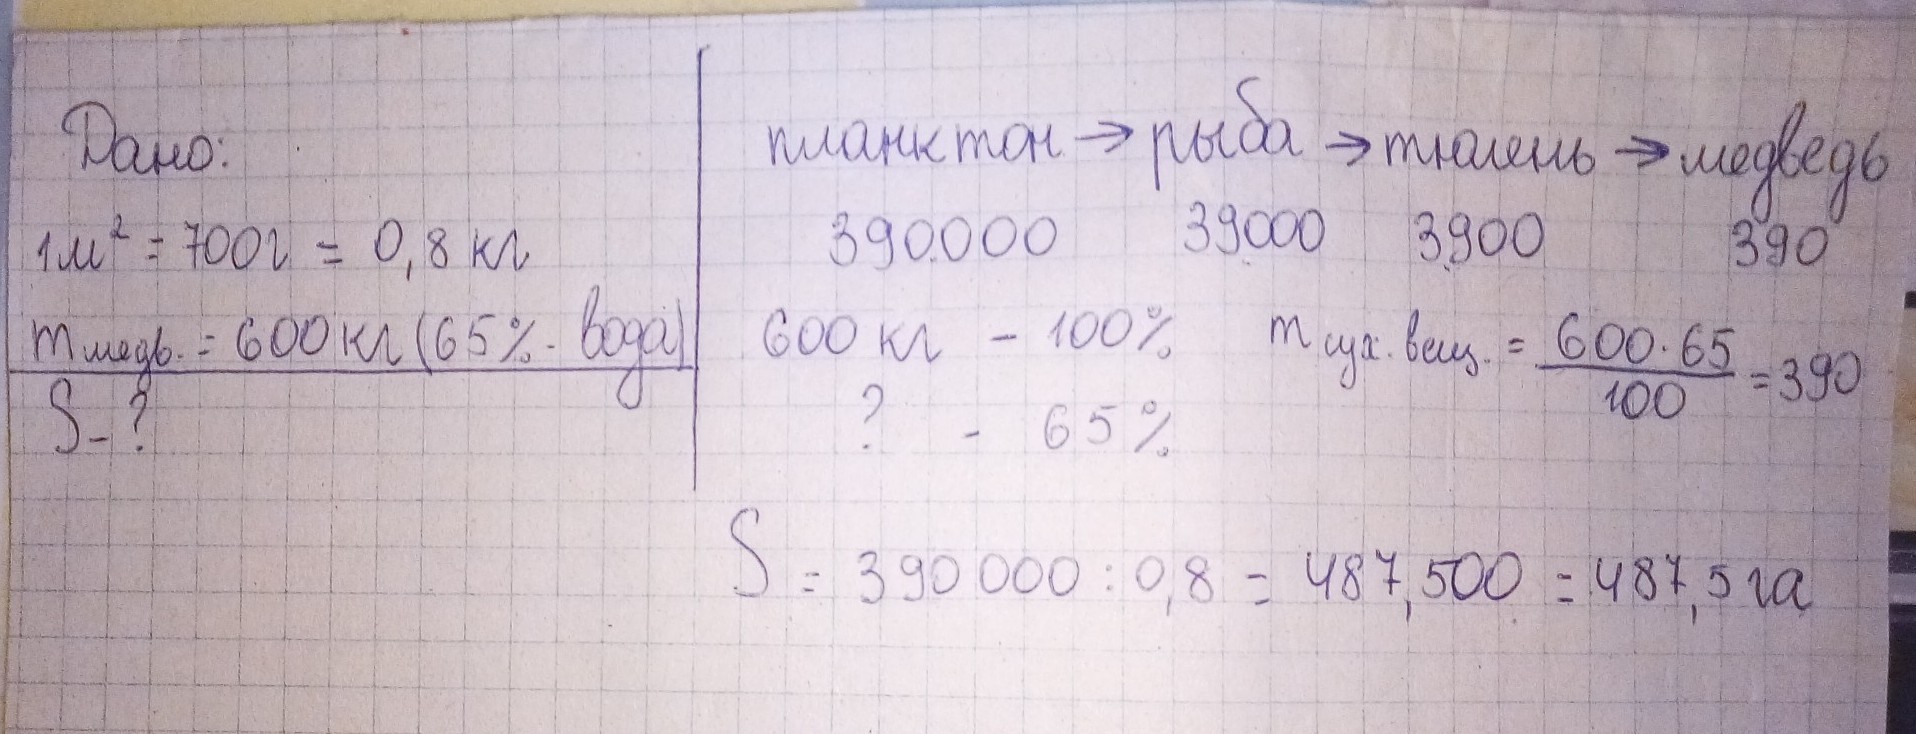 Дано:
1м² = 700г = 0,8 кг
m медв. = 600 кг (65% - вода)
S - ?
планктон → рыба → тюлень → медведь
390.000 39.000 3.900 390
600 кг - 100%
? - 65%
m сух. вещ. = 600·65 / 100 = 390
S = 390 000 : 0,8 = 487,500 = 487,5 га